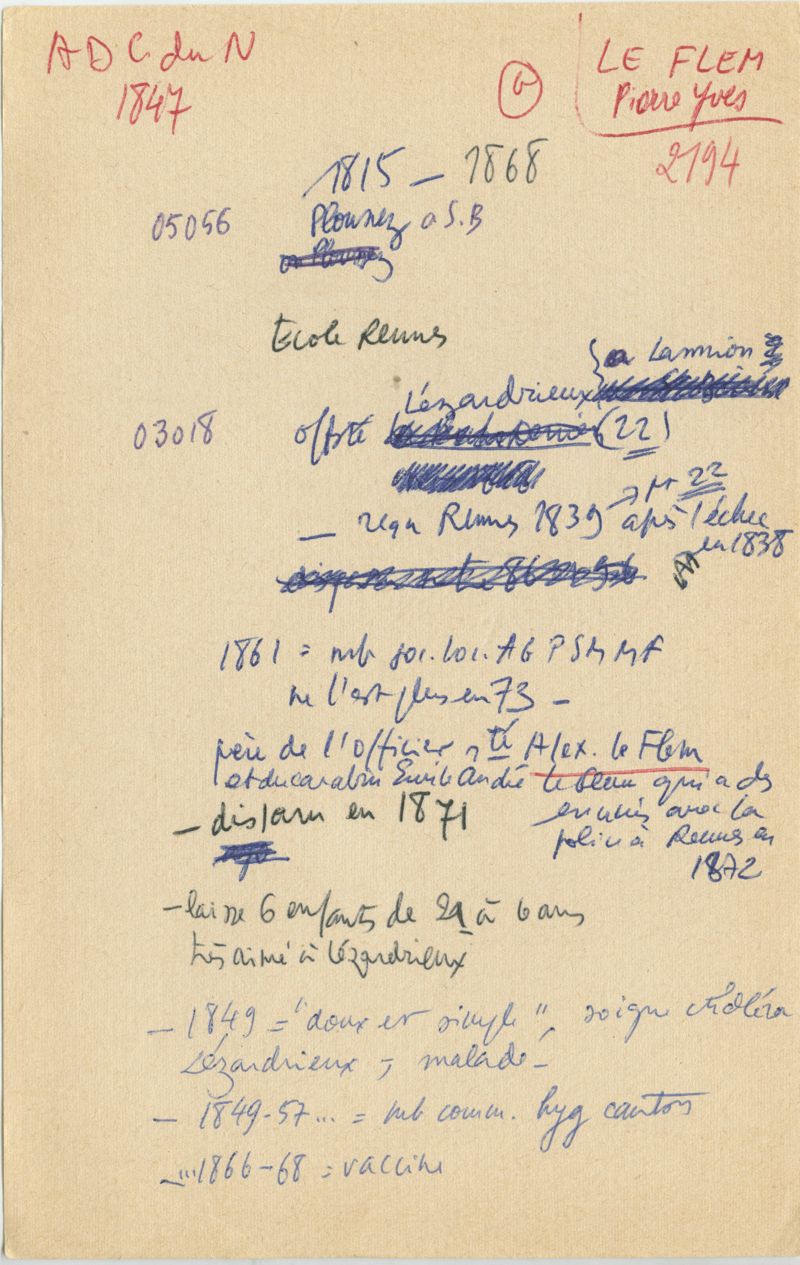 A D C. du N
1847
LE FLEM
Pierre Yves
2194
1815 – 1868
05056
Plounez a S.B
Ecole Rennes
a Lannion
Lézardrieux
03018
(22)
→ pr 22
– reçu Rennes 1839 après 1 échec
en 1838
1861 = mb soc. loc. AGPSMMF
ne l'est plus en 73 –
père de l'officier sté Alex. le Flem
et du carabin Emile André le Flem qui a des
ennuis avec la
police à Rennes en
1872
– disparu en 1871
– laisse 6 enfants de 21 à 6 ans
très aimé à Lézardrieux
– 1849 = "doux et simple", soigne choléra
Lézardrieux → malade –
– 1849-57... = mb comm. hyg canton
– ...1866-68 = vaccine